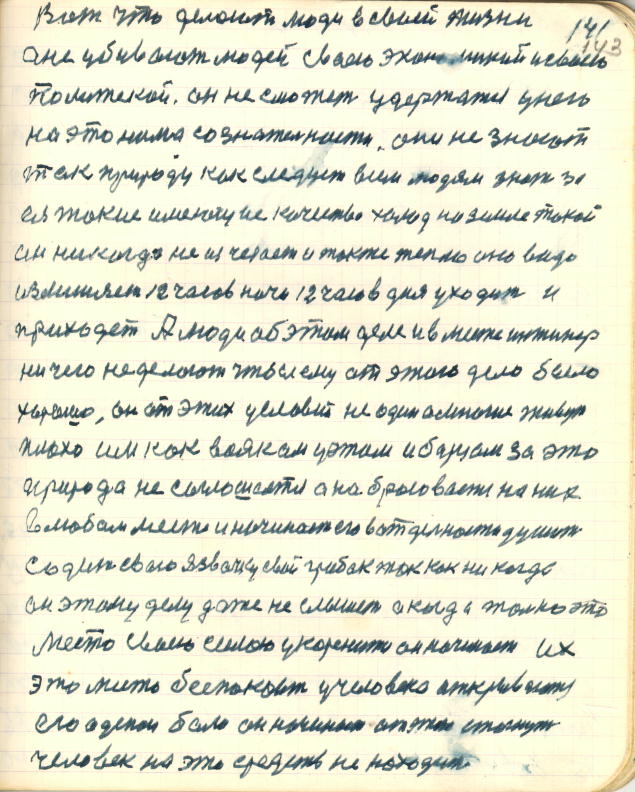 Вот что делают люди в своей жизни
141
143
они убивают людей своею экономикой и своею
политекой. он не сможет удержатся у него
на это нима сознателности, они не знают
так природу как следует всем людям знать за
ея такие имеющие качество холод на земле такой
он никогда не исчезает и также тепло оно видо
изменяет 12 часов ночи 12 часов дня уходит и
приходет А люди об этом деле и вместе
ничего не делают чтобы ему от этого дело было
хорошо, он от этих условий не один а многие живут
плохо им как воякам у этом и борцам за это
природа не соглошается она бросовается на них
в любом месте и начинает его в отделности душит
содит свою язвачку свой грибок так как ни когда
он этому делу даже не слышет а когда толко это
место своею силою укоренит он начинает их
это место беспокоит у человека открывается
его одепои бало он начинает от этого стогнут
человек на это средств не находит.